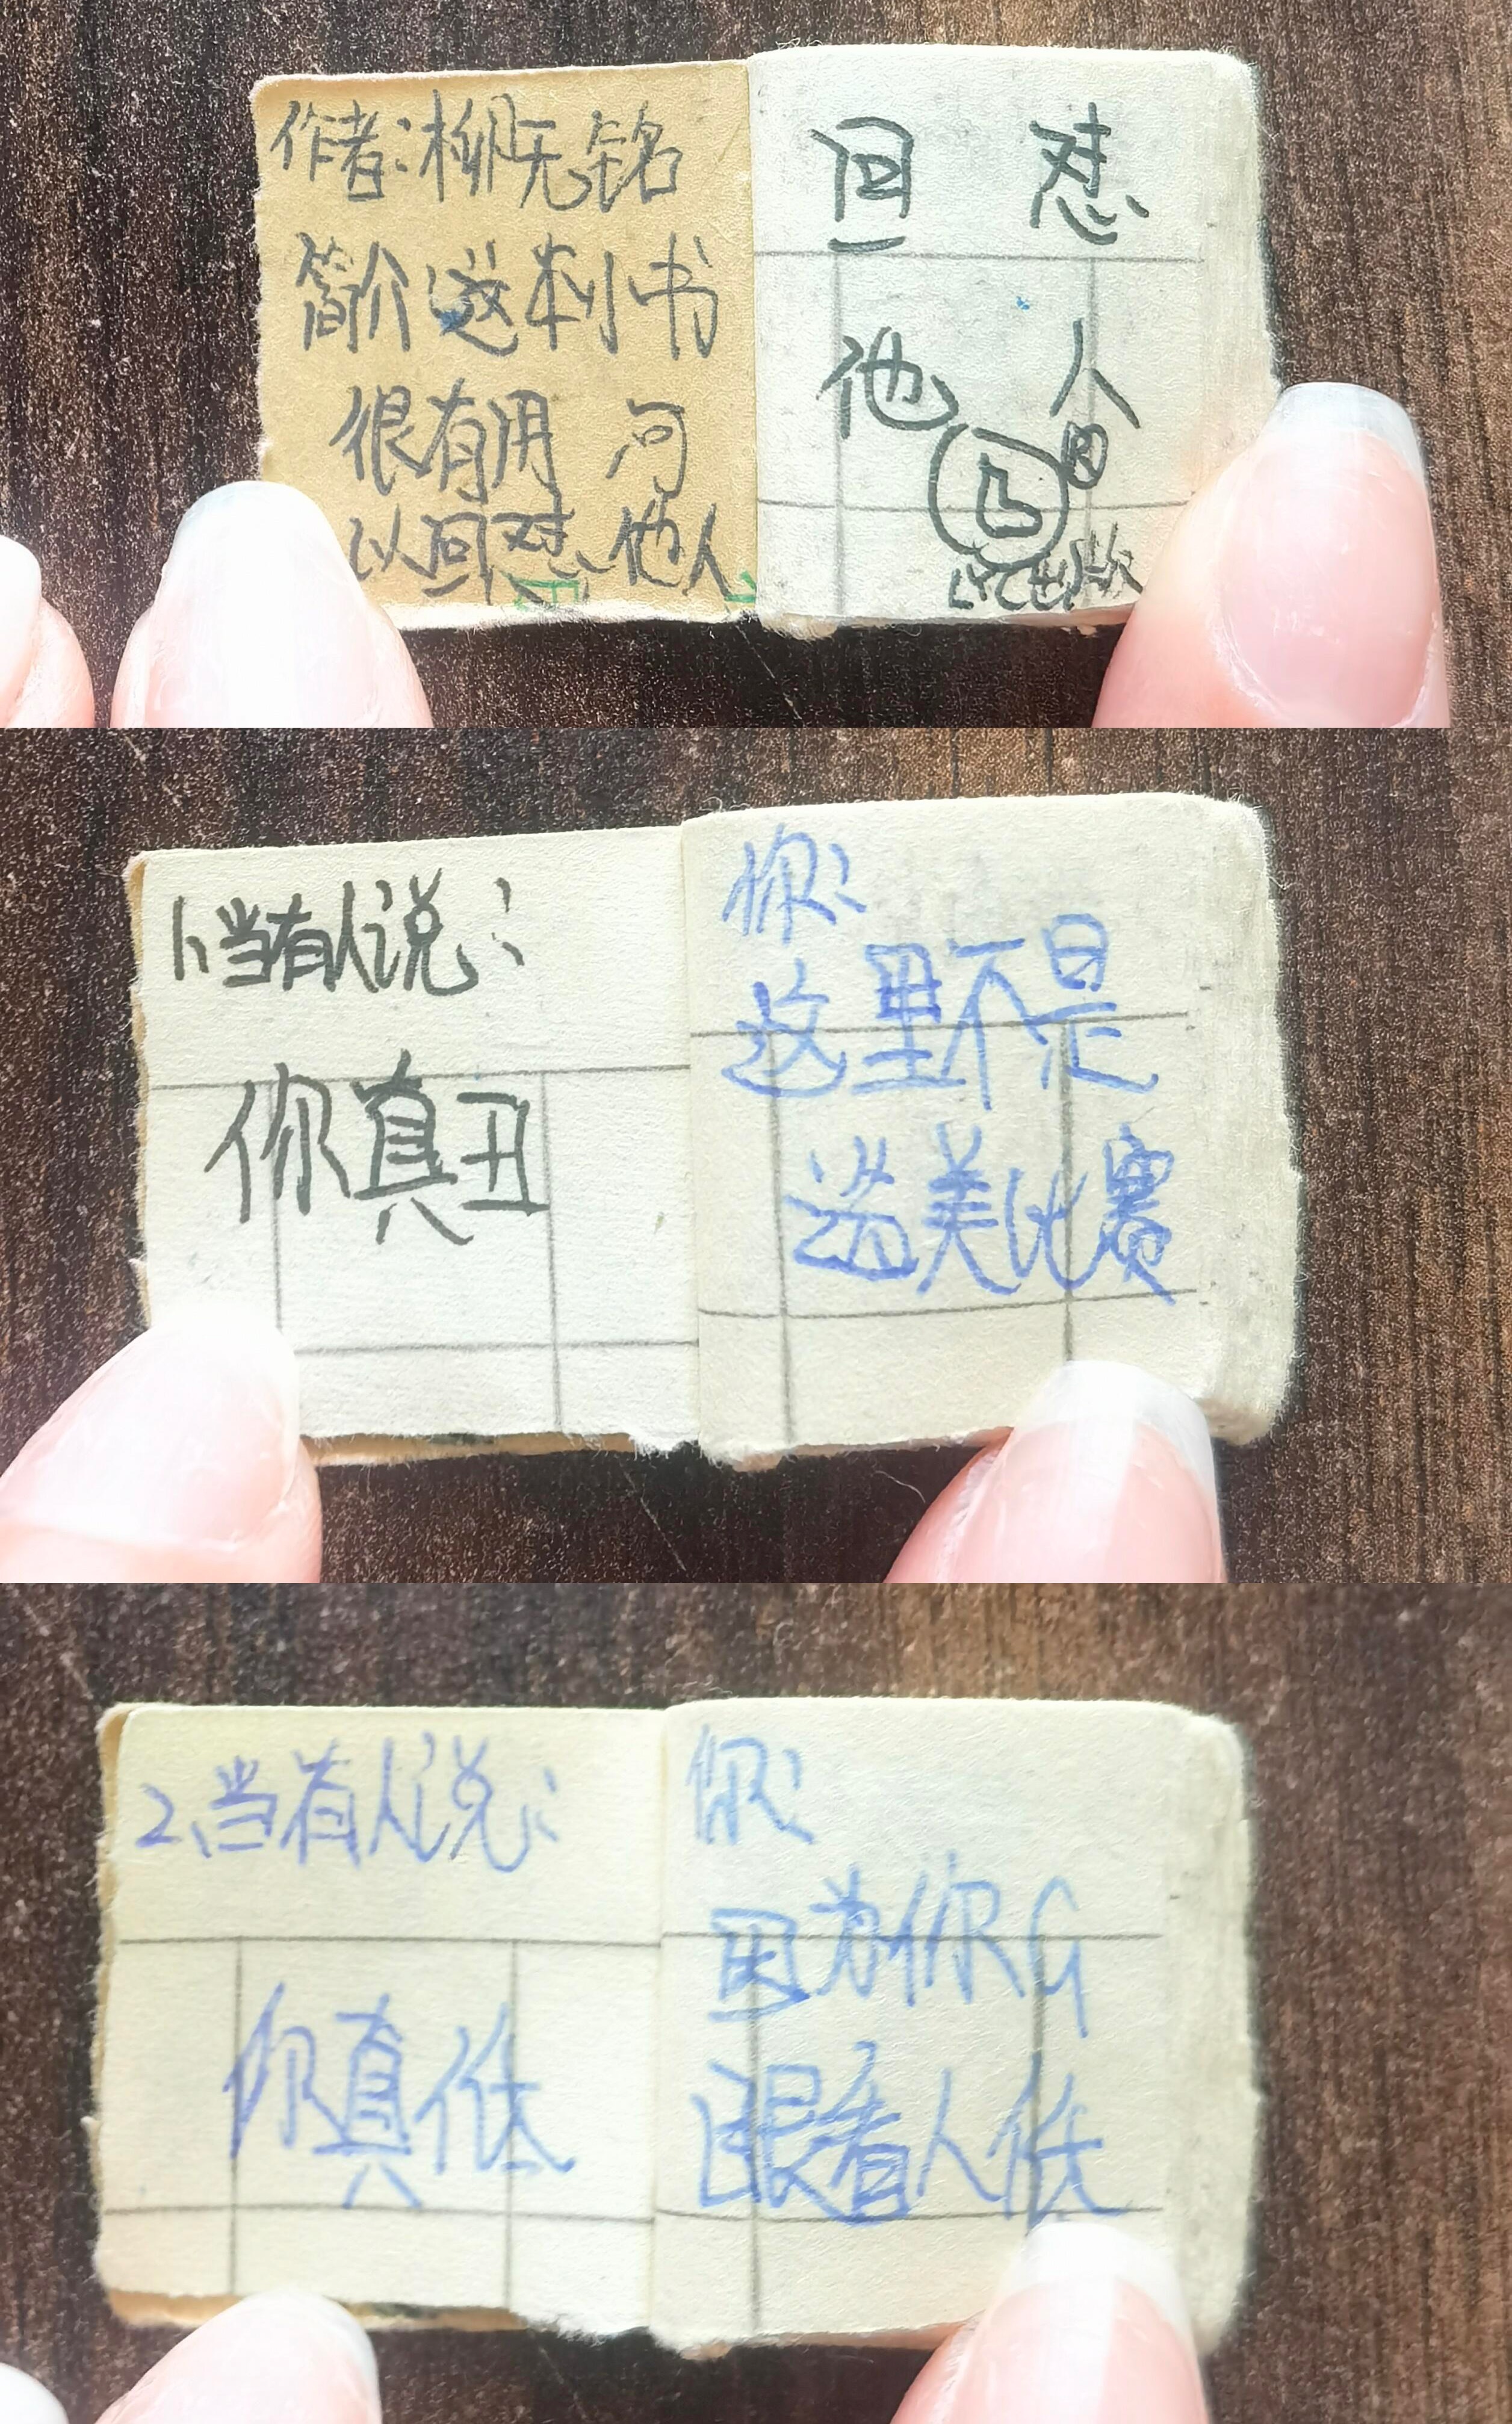 作者:柳无铭
简介这本小书
很有用 可
以回怼他人
回 怼
他 人
L R
LYC出版
1、当有人说:
你真丑
你:
这里不是
选美比赛
2、当有人说:
你真低
你:
因为你G
眼看人低